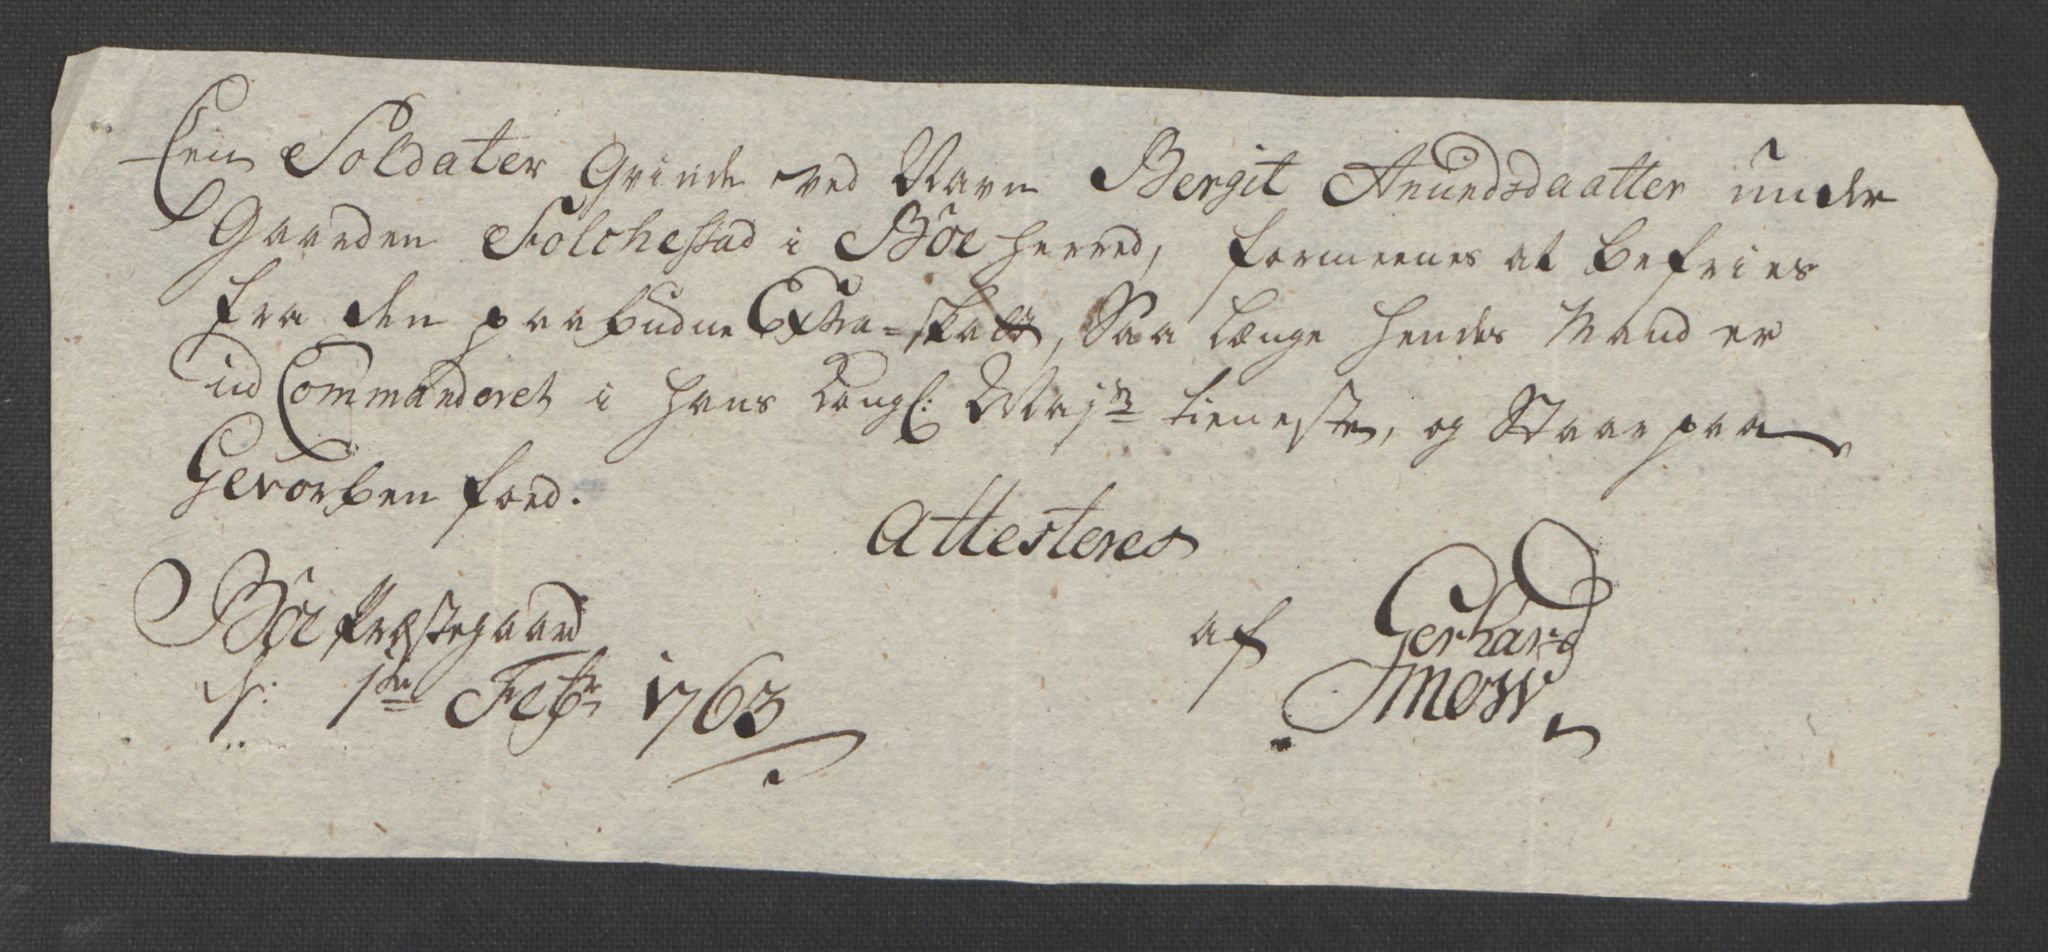 Een Soldater Qvinde ved Navn Bergit Anundsdaatter under
Gaarden Folchestad i Böe Herred, formeenes at befries
fra den paabudne Extra-skatt, Saa længe hendes Mand er
ud Commanderet i hans Kongl: Majts tieneste, og Staar paa
Gevorben foed.
Attesteres
Böe Præstegaard
d: 1ste Febr 1763
af Gerhard
Smow